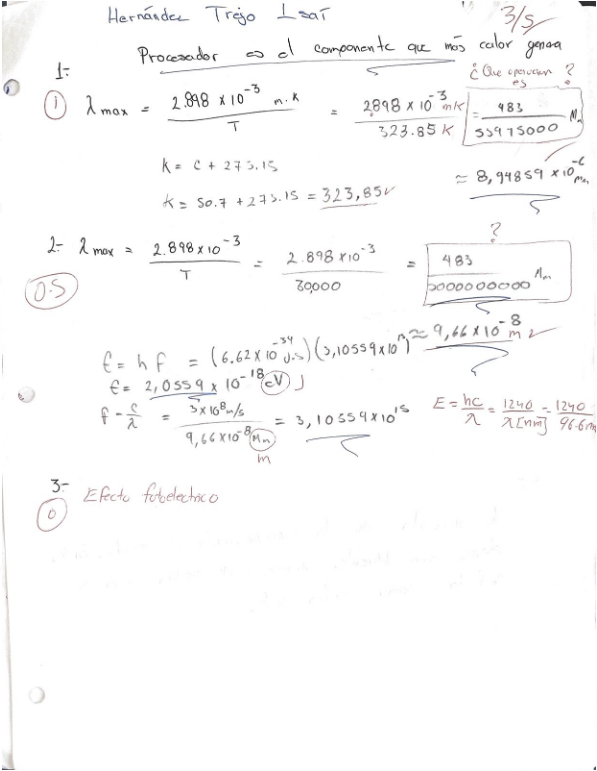 Hernández Trejo Isaí
3/5
Procesador es el componente que más calor genera
1-
¿Que operacion es ?
1
λ max = 2.898 x 10^-3 m.k / T = 2,898 x 10^-3 mK / 323.85 K = 483 / 53975000 Mm
K = C + 273.15
≈ 8,94859 x 10^-6 Mm
K = 50.7 + 273.15 = 323,85
?
2- λ max = 2.898 x10^-3 / T = 2.898 x10^-3 / 30,000 = 483 / 5000000000 Mm
0.5
≈ 9,66 x 10^-8 m
E = h f = (6.62 x 10^-34 J.s) (3,10559 x 10^15)
E = 2,0559 x 10^-18 eV J
f = c/λ = 3 x 10^8 m/s / 9,66 x10^-8 Mm = 3,10559 x10^15
m
E = hc/λ = 1240/λ[nm] = 1240/96.6nm
3- Efecto fotoelectrico
0